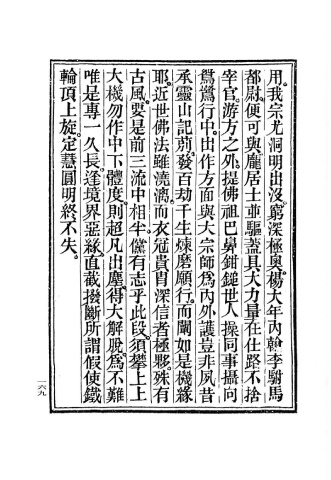 用。我宗尤洞明出沒。窮深極奧。楊大年內翰李駙馬
都尉。便可與龐居士並驅。蓋具大力量。在仕路不捨
宰官。游方之外。提佛祖巴鼻。鉗鎚世人。操同事攝。向
鴛鴦行中。出作方面。與大宗師為內外護。豈非夙昔
承靈山記莂。發百劫千生煉磨願行。而闡如是機緣
耶。近世佛法雖澆漓。而衣冠貴胄深信者極夥。殊有
古風。要是前三流中相半。儻有志乎此段。須攀上上
大機。勿作中下體度。則超凡出塵。得大解脫為不難
唯是專一久長。逢境界惡緣。直截撥斷。所謂假使鐵
輪頂上旋。定慧圓明終不失。
一六九